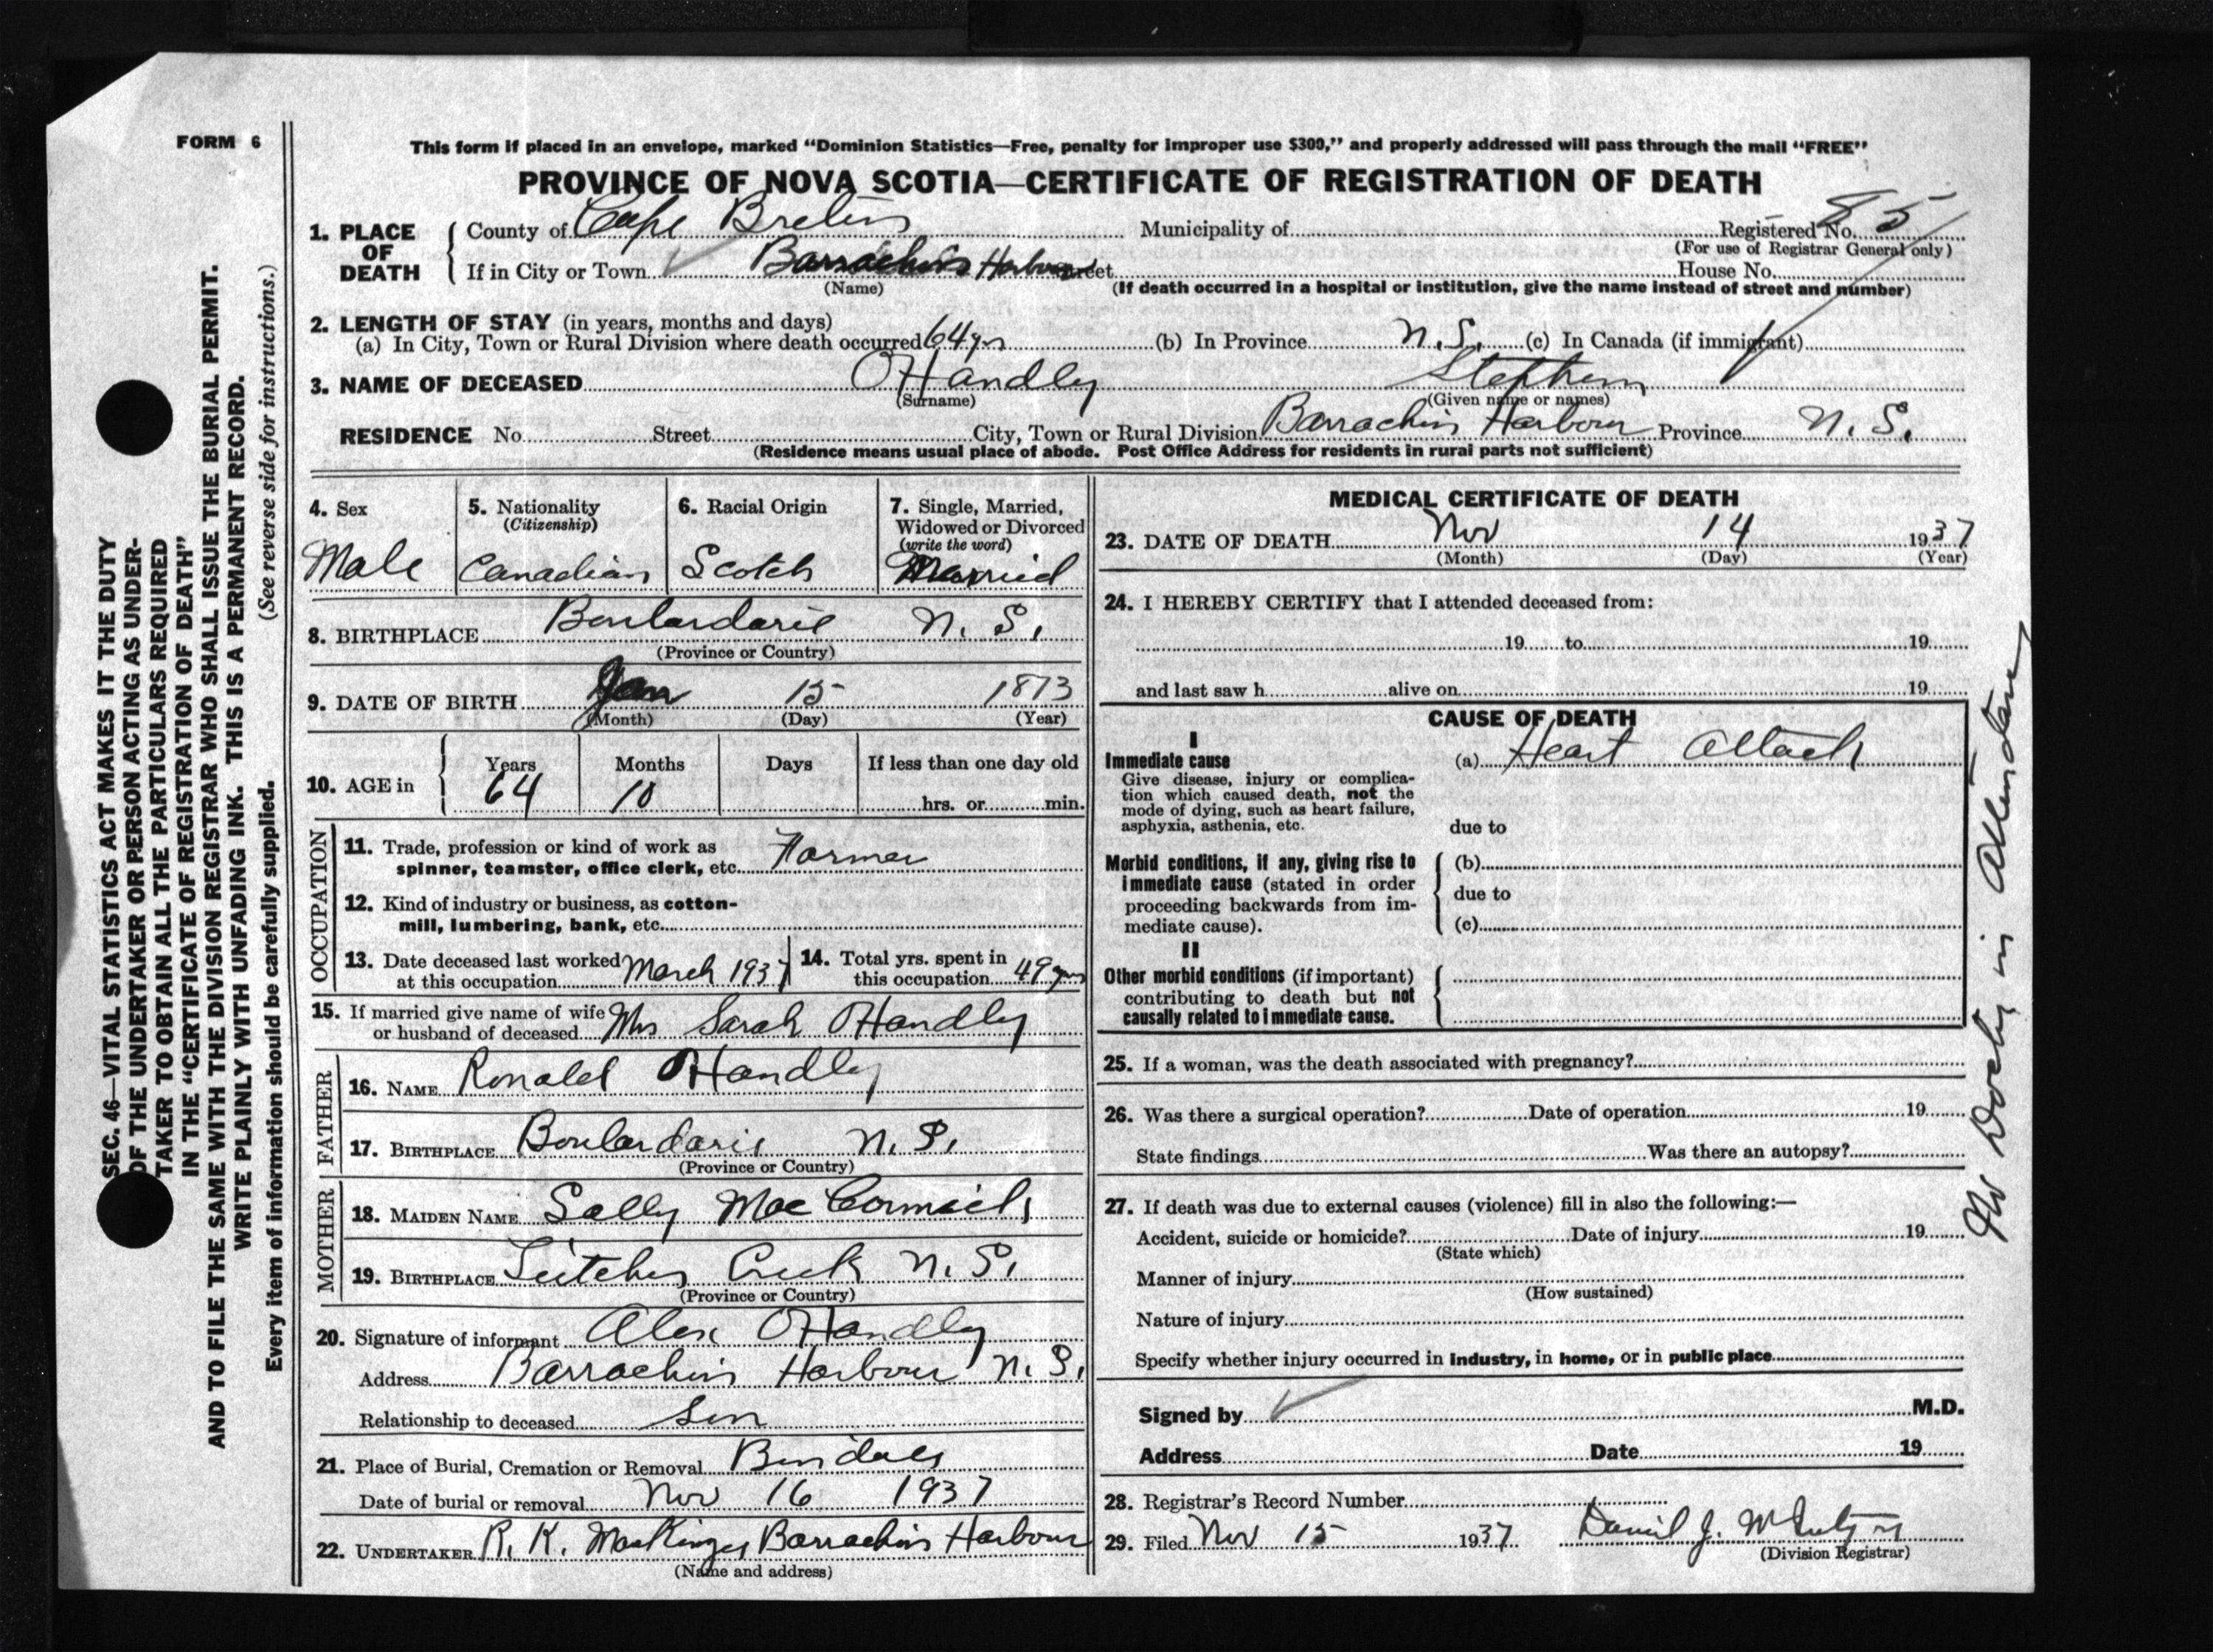 FORM 6
This form if placed in an envelope, marked "Dominion Statistics—Free, penalty for improper use $300," and properly addressed will pass through the mail "FREE"
PROVINCE OF NOVA SCOTIA—CERTIFICATE OF REGISTRATION OF DEATH
1. PLACE OF DEATH
County of Cape Breton Municipality of Registered No. 85
(For use of Registrar General only)
If in City or Town Barrachois Harbour Street House No.
(Name) (If death occurred in a hospital or institution, give the name instead of street and number)
2. LENGTH OF STAY (in years, months and days)
(a) In City, Town or Rural Division where death occurred 64 yrs (b) In Province N.S. (c) In Canada (if immigrant)
3. NAME OF DECEASED OHandley Stephen
(Surname) (Given name or names)
RESIDENCE No. Street City, Town or Rural Division Barrachois Harbour Province N.S.
(Residence means usual place of abode. Post Office Address for residents in rural parts not sufficient)
4. Sex
Male
5. Nationality
(Citizenship)
Canadian
6. Racial Origin
Scotch
7. Single, Married,
Widowed or Divorced
(write the word)
Married
8. BIRTHPLACE Boulardarie N.S.
(Province or Country)
9. DATE OF BIRTH Jan 15 1873
(Month) (Day) (Year)
10. AGE in
Years Months Days If less than one day old
64 10 hrs. or min.
OCCUPATION
11. Trade, profession or kind of work as
spinner, teamster, office clerk, etc. Farmer
12. Kind of industry or business, as cotton-
mill, lumbering, bank, etc.
13. Date deceased last worked
at this occupation March 1937
14. Total yrs. spent in
this occupation 49 yrs
15. If married give name of wife
or husband of deceased Mrs Sarah OHandley
FATHER
16. NAME Ronald OHandley
17. BIRTHPLACE Boulardarie N.S.
(Province or Country)
MOTHER
18. MAIDEN NAME Sally MacCormick
19. BIRTHPLACE Leitches Creek N.S.
(Province or Country)
20. Signature of informant Alex OHandley
Address Barrachois Harbour N.S.
Relationship to deceased Son
21. Place of Burial, Cremation or Removal
Date of burial or removal Nov 16 1937
22. UNDERTAKER R. K. MacKinzey Barrachois Harbour
(Name and address)
MEDICAL CERTIFICATE OF DEATH
23. DATE OF DEATH Nov 14 1937
(Month) (Day) (Year)
24. I HEREBY CERTIFY that I attended deceased from:
19 to 19
and last saw h alive on 19
CAUSE OF DEATH
I
Immediate cause (a) Heart Attack
Give disease, injury or complica-
tion which caused death, not the
mode of dying, such as heart failure,
asphyxia, asthenia, etc. due to
Morbid conditions, if any, giving rise to (b)
immediate cause (stated in order due to
proceeding backwards from im-
mediate cause). (c)
II
Other morbid conditions (if important)
contributing to death but not
causally related to immediate cause.
25. If a woman, was the death associated with pregnancy?
26. Was there a surgical operation? Date of operation 19
State findings Was there an autopsy?
27. If death was due to external causes (violence) fill in also the following:—
Accident, suicide or homicide? Date of injury 19
(State which)
Manner of injury
(How sustained)
Nature of injury
Specify whether injury occurred in industry, in home, or in public place
Signed by M.D.
Address Date 19
28. Registrar's Record Number
29. Filed Nov 15 1937 Daniel J.
(Division Registrar)
SEC. 46—VITAL STATISTICS ACT MAKES IT THE DUTY
OF THE UNDERTAKER OR PERSON ACTING AS UNDER-
TAKER TO OBTAIN ALL THE PARTICULARS REQUIRED
IN THE "CERTIFICATE OF REGISTRATION OF DEATH"
AND TO FILE THE SAME WITH THE DIVISION REGISTRAR WHO SHALL ISSUE THE BURIAL PERMIT.
WRITE PLAINLY WITH UNFADING INK. THIS IS A PERMANENT RECORD.
(See reverse side for instructions.)
Every item of information should be carefully supplied.
No Doctor in Attendance